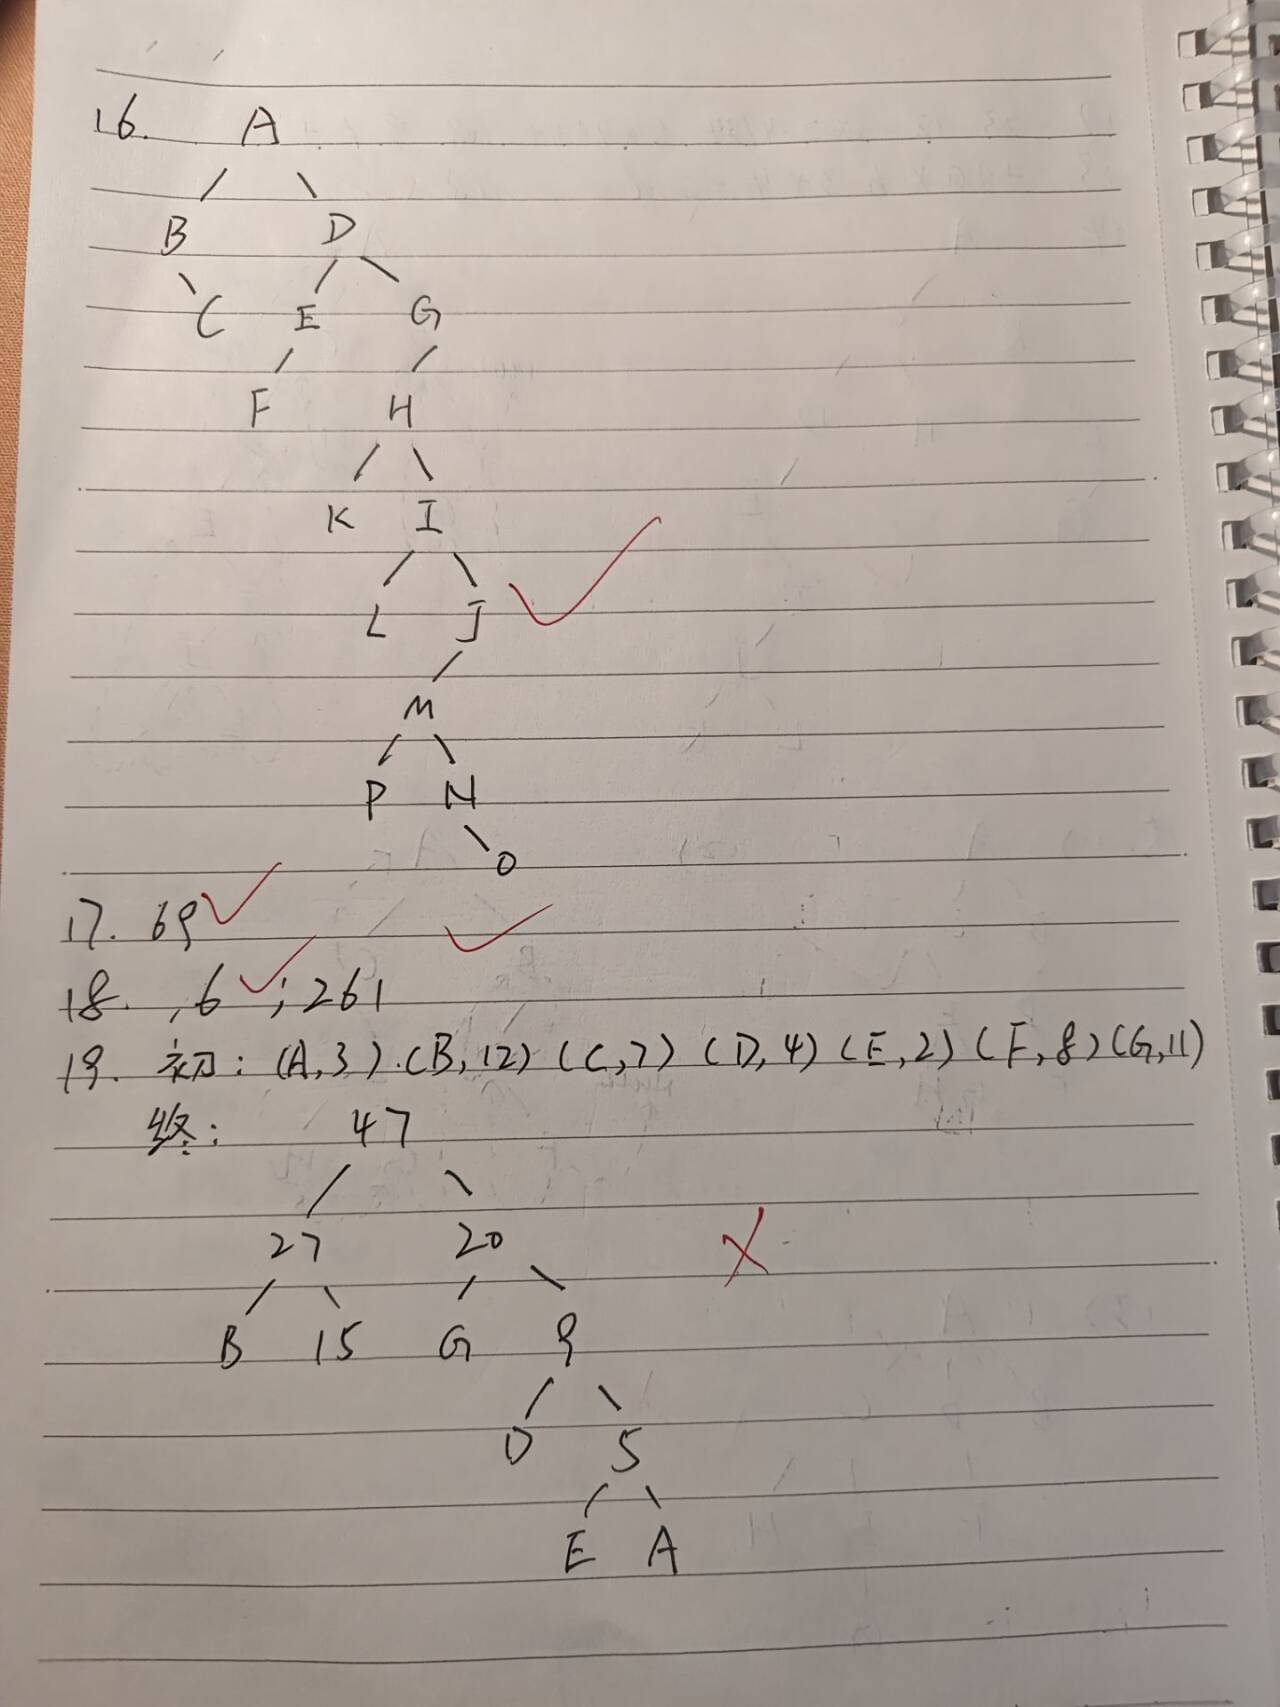 16. A
B D
C E G
F H
K I
L J
M
P N
O
17. 69
18. , 6 ; 261
19. 初: (A,3).(B,12) (C,7) (D,4) (E,2) (F,8) (G,11)
终: 47
27 20
B 15 G 9
D 5
E A